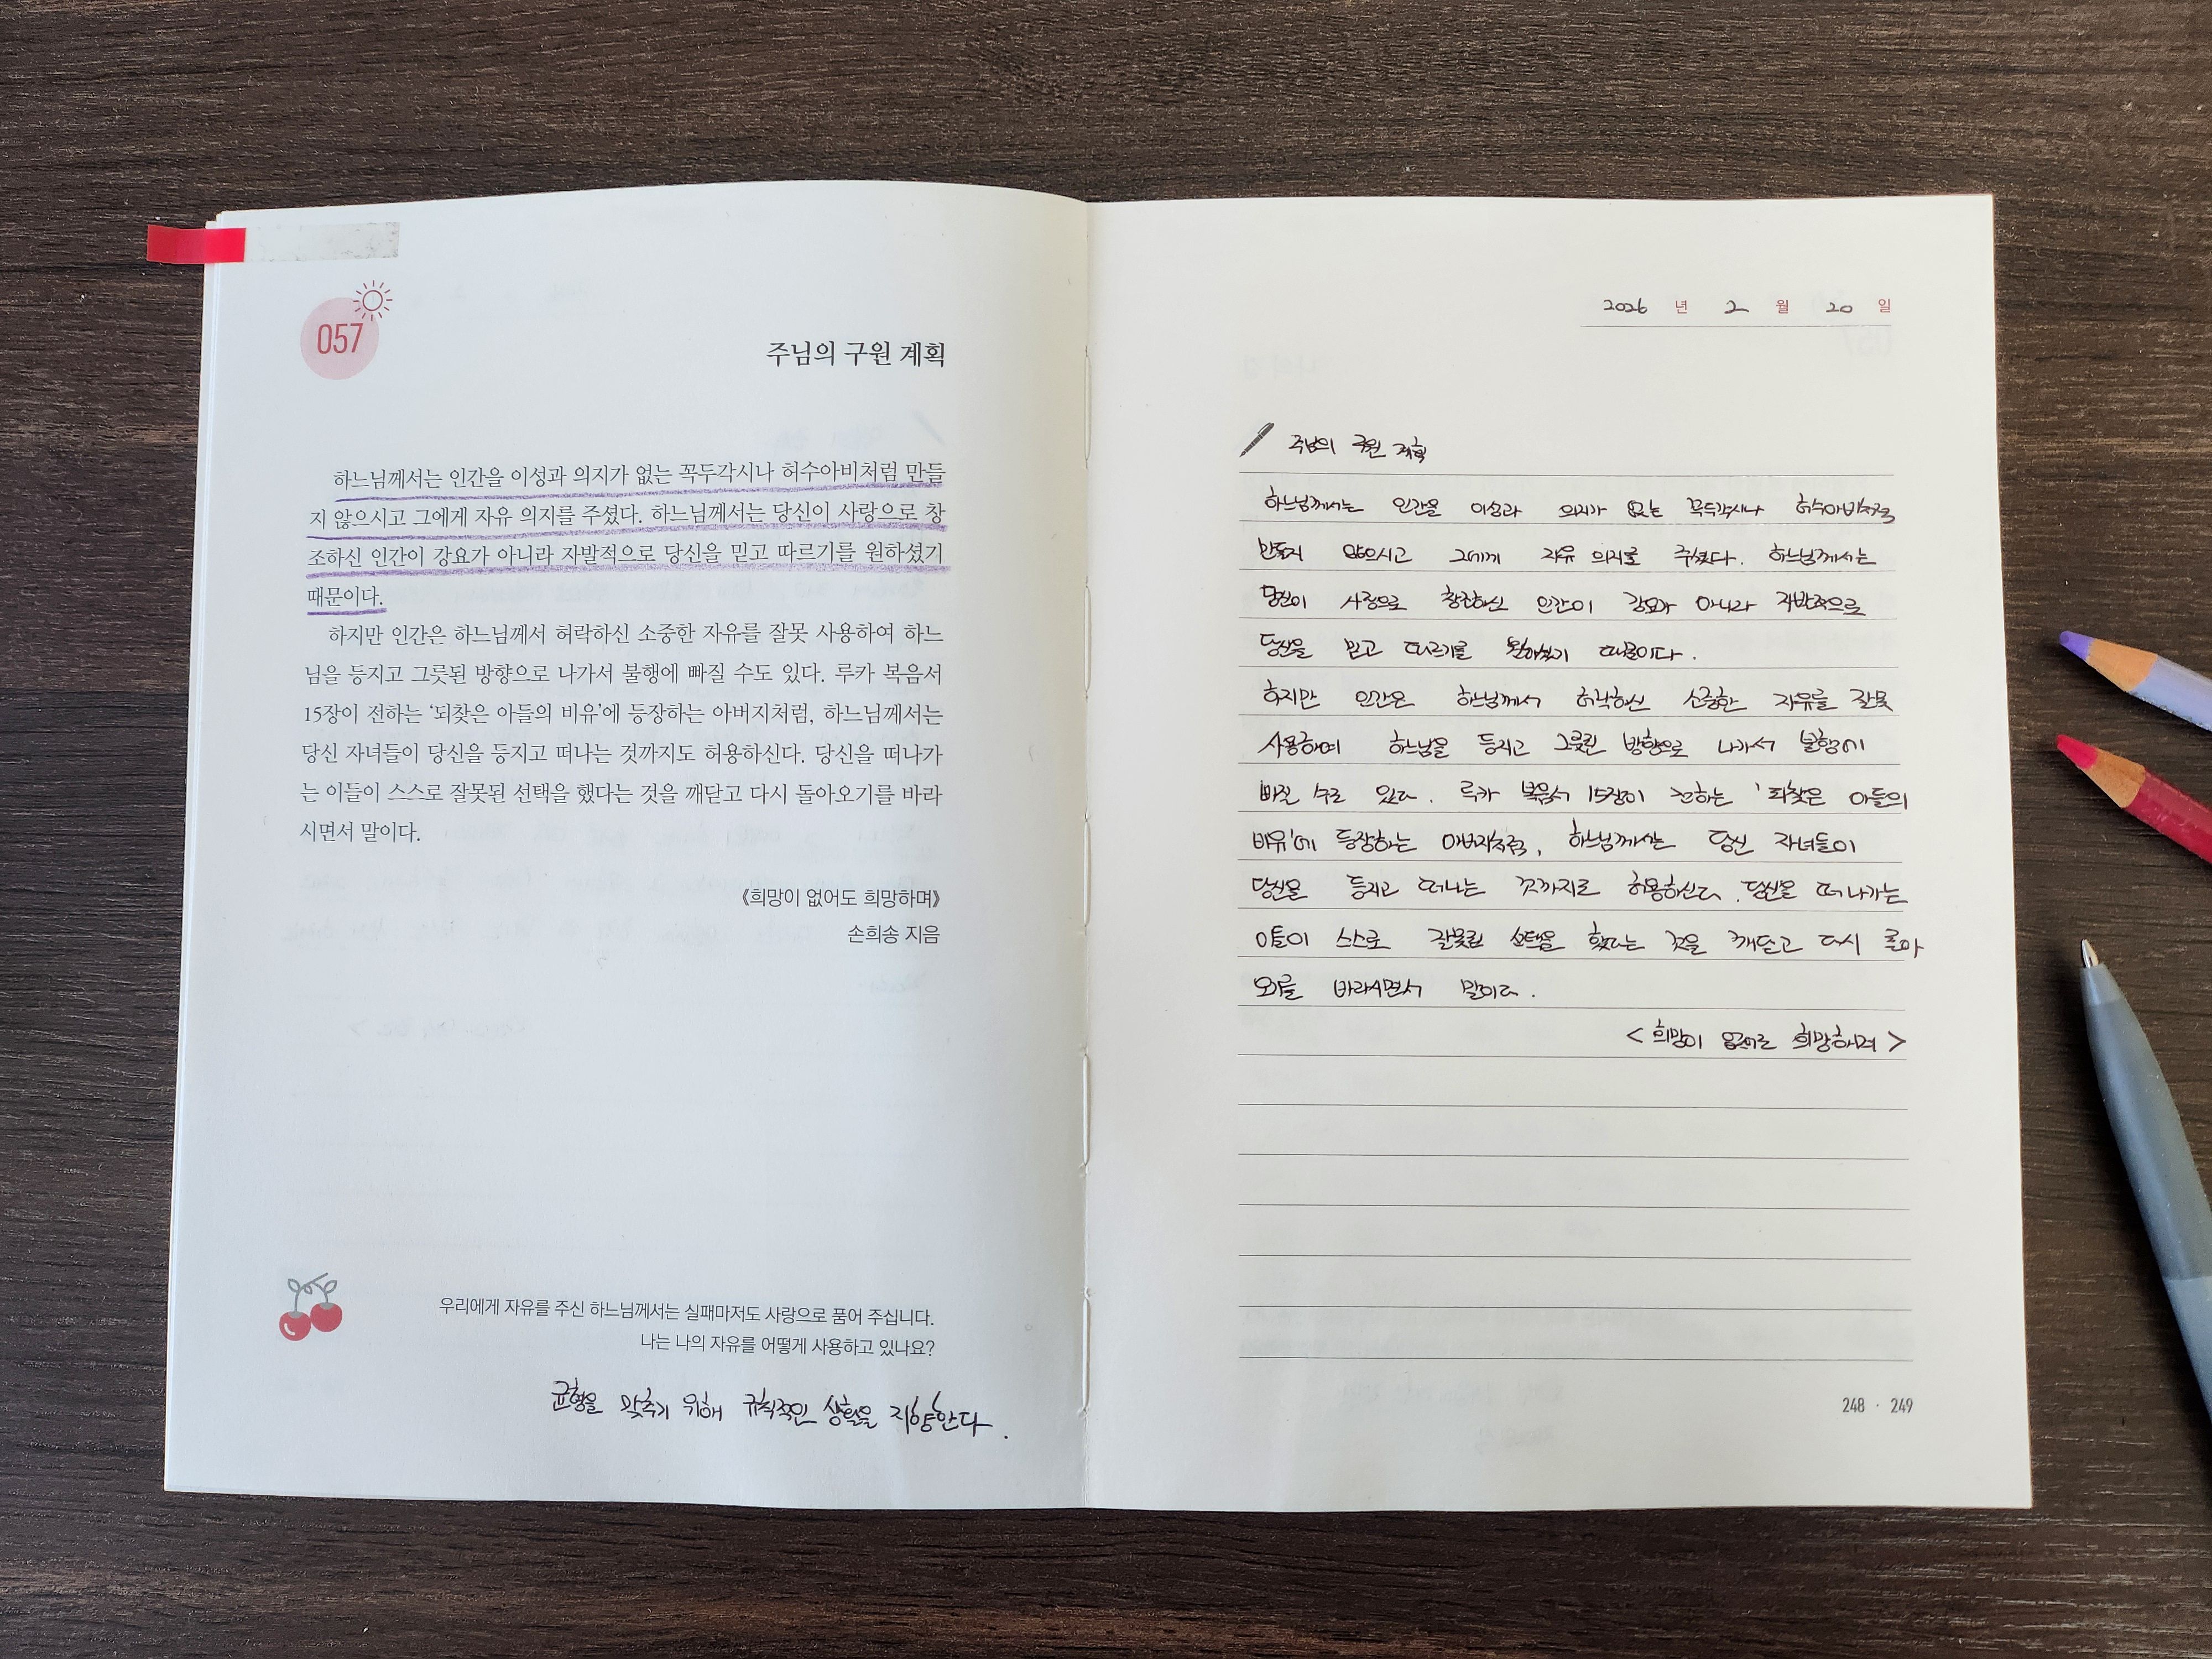 057
주님의 구원 계획
하느님께서는 인간을 이성과 의지가 없는 꼭두각시나 허수아비처럼 만들
지 않으시고 그에게 자유 의지를 주셨다. 하느님께서는 당신이 사랑으로 창
조하신 인간이 강요가 아니라 자발적으로 당신을 믿고 따르기를 원하셨기
때문이다.
하지만 인간은 하느님께서 허락하신 소중한 자유를 잘못 사용하여 하느
님을 등지고 그릇된 방향으로 나가서 불행에 빠질 수도 있다. 루카 복음서
15장이 전하는 ‘되찾은 아들의 비유’에 등장하는 아버지처럼, 하느님께서는
당신 자녀들이 당신을 등지고 떠나는 것까지도 허용하신다. 당신을 떠나가
는 이들이 스스로 잘못된 선택을 했다는 것을 깨닫고 다시 돌아오기를 바라
시면서 말이다.
《희망이 없어도 희망하며》
손희송 지음
우리에게 자유를 주신 하느님께서는 실패마저도 사랑으로 품어 주십니다.
나는 나의 자유를 어떻게 사용하고 있나요?
균형을 맞추기 위해 규칙적인 생활을 지향한다.
2026 년 2 월 20 일
주님의 구원 계획
하느님께서는 인간을 이성과 의지가 없는 꼭두각시나 허수아비처럼
만들지 않으시고 그에게 자유 의지를 주셨다. 하느님께서는
당신이 사랑으로 창조하신 인간이 강요가 아니라 자발적으로
당신을 믿고 따르기를 원하셨기 때문이다.
하지만 인간은 하느님께서 허락하신 소중한 자유를 잘못
사용하여 하느님을 등지고 그릇된 방향으로 나가서 불행에
빠질 수도 있다. 루카 복음서 15장이 전하는 '되찾은 아들의
비유'에 등장하는 아버지처럼, 하느님께서는 당신 자녀들이
당신을 등지고 떠나는 것까지도 허용하신다. 당신을 떠나가는
이들이 스스로 잘못된 선택을 했다는 것을 깨닫고 다시 돌아
오기를 바라시면서 말이다.
<희망이 없어도 희망하며>
248 · 249